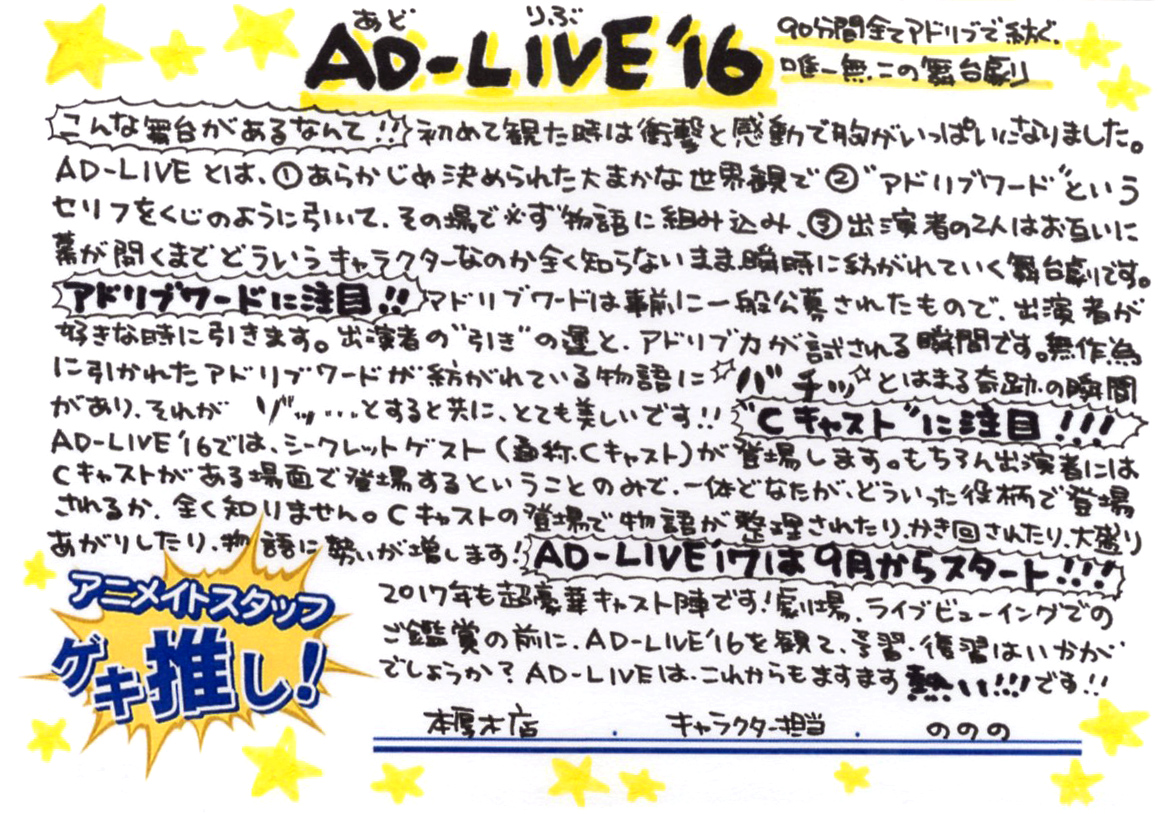 あど りぶ
AD-LIVE '16
90分間全てアドリブで紡ぐ、
唯一無二の舞台劇
こんな舞台があるなんて!! 初めて観た時は衝撃と感動で胸がいっぱいになりました。
AD-LIVE とは、①あらかじめ決められた大まかな世界観で②"アドリブワード"という
セリフをくじのように引いて、その場で必ず物語に組み込み、③出演者の2人はお互いに
幕が開くまでどういうキャラクターなのか全く知らないまま瞬時に紡がれていく舞台劇です。
アドリブワードに注目!! アドリブワードは事前に一般公募されたもので、出演者が
好きな時に引きます。出演者の"引き"の運と、アドリブ力が試される瞬間です。無作為
に引かれたアドリブワードが紡がれている物語に バチッ とはまる奇跡の瞬間
があり、それが ゾッ…とすると共に、とても美しいです!! "Cキャスト"に注目!!!
AD-LIVE '16では、シークレットゲスト(通称、Cキャスト)が登場します。もちろん出演者には
Cキャストがある場面で登場するということのみで、一体どなたが、どういった役柄で登場
されるか、全く知りません。Cキャストの登場で物語が整理されたり、かき回されたり、大盛り
あがりしたり、物語に勢いが増します! AD-LIVE'17は9月からスタート!!!
2017年も超豪華キャスト陣です!劇場、ライブビューイングでの
ご鑑賞の前に、AD-LIVE'16を観て、予習・復習はいかが
でしょうか? AD-LIVEは、これからもますます熱い!!!です!!
アニメイトスタッフ
ゲキ推し!
本厚木店 . キャラクター担当 . ののの